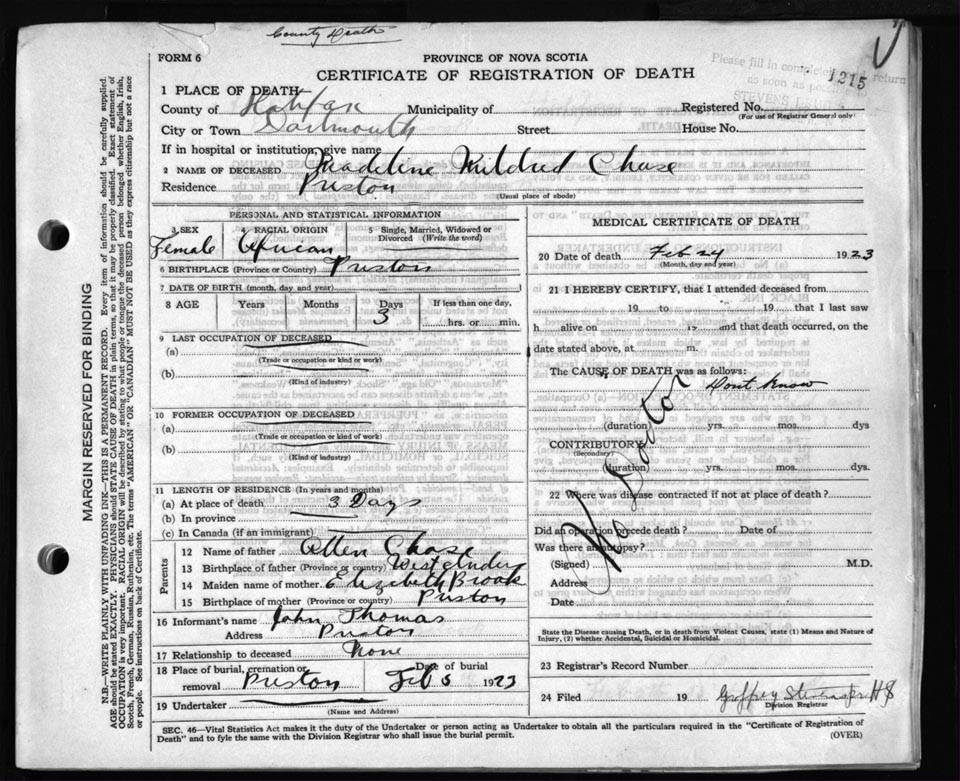 County Death
FORM 6
PROVINCE OF NOVA SCOTIA
CERTIFICATE OF REGISTRATION OF DEATH
Please fill in completely and return
as soon as possible
STEVENS
1215
1 PLACE OF DEATH
County of Halifax Municipality of Registered No.
(For use of Registrar General only)
City or Town Dartmouth Street House No.
If in hospital or institution, give name
2 NAME OF DECEASED Madeline Mildred Chase
Residence Preston
(Usual place of abode)
PERSONAL AND STATISTICAL INFORMATION
3 SEX Female
RACIAL ORIGIN African
5 Single, Married, Widowed or Divorced (Write the word)
6 BIRTHPLACE (Province or Country) Preston
7 DATE OF BIRTH (month, day and year)
8 AGE Years Months Days 3 If less than one day, hrs. or min.
9 LAST OCCUPATION OF DECEASED
(a)
(Trade or occupation or kind or work)
(b)
(Kind of industry)
10 FORMER OCCUPATION OF DECEASED
(a)
(Trade or occupation or kind or work)
(b)
(Kind of industry)
11 LENGTH OF RESIDENCE (In years and months)
(a) At place of death 3 Days
(b) In province
(c) In Canada (if an immigrant)
Parents
12 Name of father Allen Chase
13 Birthplace of father (Province or country) West Indies
14 Maiden name of mother Elizibeth Brook
15 Birthplace of mother (Province or country) Preston
16 Informant's name John Thomas
Address Preston
17 Relationship to deceased None
18 Place of burial, cremation or removal Preston Date of burial Feb 5 1923
19 Undertaker
(Name and Address)
MEDICAL CERTIFICATE OF DEATH
20 Date of death Feb 1923
(Month, day and year)
21 I HEREBY CERTIFY, that I attended deceased from
19 to 19 that I last saw
h alive on 19 and that death occurred, on the
date stated above, at m.
The CAUSE OF DEATH was as follows:
Dont Know
(duration) yrs. mos. dys
CONTRIBUTORY
(Secondary)
(duration) yrs. mos. dys.
No Doctor
22 Where was disease contracted if not at place of death?
Did an operation precede death? Date of
Was there an autopsy?
(Signed) M.D.
Address
Date
State the Disease causing Death, or in death from Violent Causes, state (1) Means and Nature of
Injury, (2) whether Accidental, Suicidal or Homicidal.
23 Registrar's Record Number
24 Filed 19
Division Registrar
SEC. 46—Vital Statistics Act makes it the duty of the Undertaker or person acting as Undertaker to obtain all the particulars required in the "Certificate of Registration of
Death" and to fyle the same with the Division Registrar who shall issue the burial permit.
(OVER)
MARGIN RESERVED FOR BINDING
N.B.—WRITE PLAINLY WITH UNFADING INK—THIS IS A PERMANENT RECORD. Every item of information should be carefully supplied.
AGE should be stated EXACTLY. PHYSICIANS should STATE CAUSE OF DEATH in plain terms, so that it may be properly classified. Exact statement of
OCCUPATION is very important. RACIAL ORIGIN will be described by stating to what people or tongue the deceased person belonged whether English, Irish,
Scotch, French, German, Russian, Ruthenian, etc. The terms "AMERICAN" or "CANADIAN" MUST NOT BE USED as they express citizenship but not a race
or people. See instructions on back of Certificate.